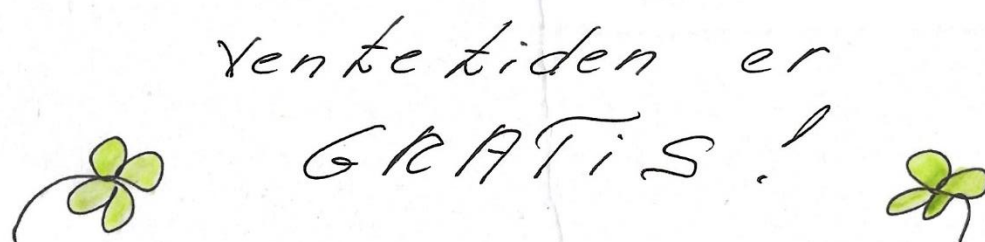 Ventetiden er
GRATiS!